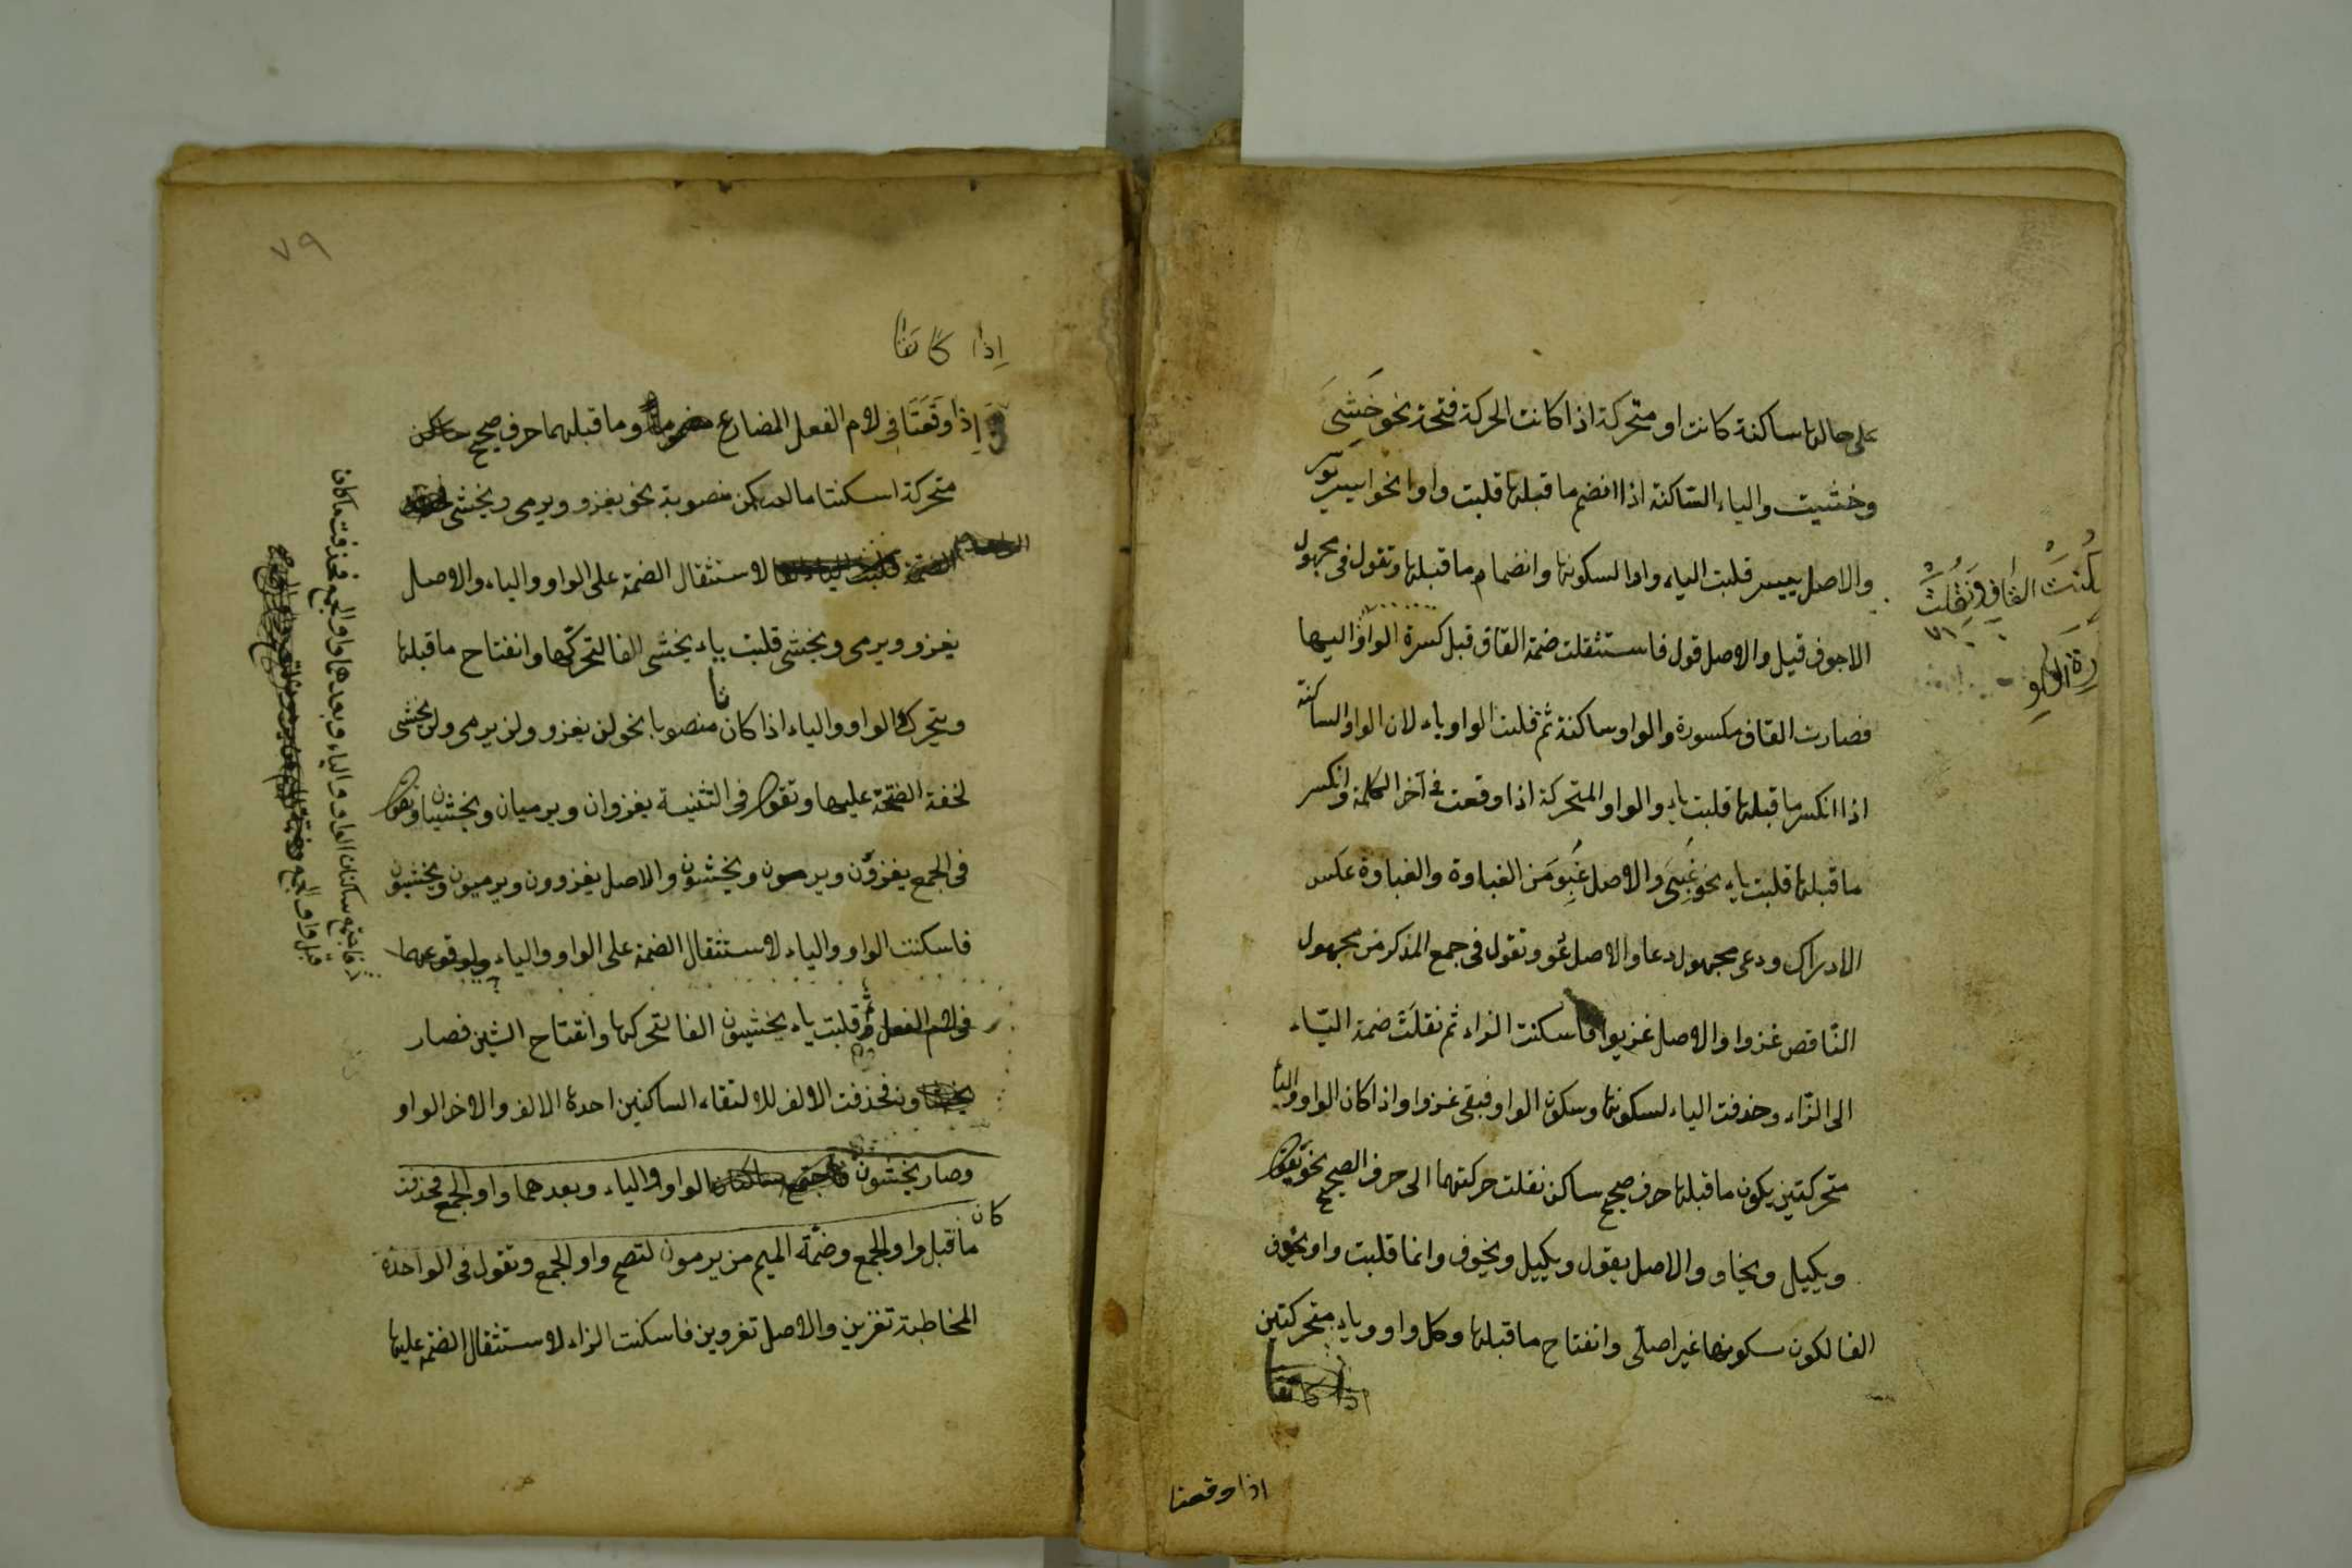 على حالها ساكنة كانت او متحركة اذا كانت الحركة فتحة نحو خَشِىَ
وخشيت والياء الساكنة اذا انضم ما قبلها قلبت واوا نحو ايسر يوسر
والاصل ييسر قلبت الياء واوا لسكونها وانضمام ما قبلها وتقول فى مجهول
الاجوف قيل والاصل قول فاستثقلت ضمة القاف قبل كسرة الواو اليها
فصارت القاف مكسورة والواو ساكنة ثم قلبت الواو ياء لان الواو الساكنة
اذا انكسر ما قبلها قلبت ياء والواو المتحركة اذا وقعت فى آخر الكلمة وانكسر
ما قبلها قلبت ياء نحو غَبِىَ والاصل غَبِوَ من الغباوة والغباوة عكس
الادراك ودعى مجهول دعا والاصل دُعو وتقول فى جمع المذكر من مجهول
الناقص غزوا والاصل غزيوا فاسكنت الزاء ثم نقلت ضمة الياء
الى الزاء وحذفت الياء لسكونها وسكون الواو فبقى غزوا واذا كان الواو والياء
متحركتين يكون ما قبلها حرف صحيح ساكن نقلت حركتهما الى حرف الصحيح نحو يقول
ويكيل ويخاو والاصل يقول ويكييل ويخوف وانما قلبت واو يخوف
الفا لكون سكونها غير اصلى وانفتاح ما قبلها وكل واو وياء متحركتين
اذا كانتا
اذا وقعتا
سكنت القاف ونقلت
رة الواو
٧٩
اذا كانتا
إذا وَقَعَتَا فى لام الفعل المضارع وما قبلهما حرف صحيح
متحركة اسكنتا ما لم يكن منصوبة نحو يغزو ويرمى ويخشى
لاستثقال الضمة على الواو والياء والاصل
يغزو ويرمى ويخشى قلبت ياء يخشى الفا لتحركها وانفتاح ما قبلها
ويتحرك الواو والياء اذا كان منصوبا نحو لن يغزو ولن يرمى ولن يخشى
لخفة الفتحة عليها وتقول فى التثنية يغزوان ويرميان ويخشيان وتقول
فى الجمع يغزون ويرمون ويخشون والاصل يغزوون ويرميون ويخشيون
فاسكنت الواو والياء لاستثقال الضمة على الواو والياء ولوقوعهما
فى لام الفعل ثم قلبت ياء يخشيون الفا لتحركها وانفتاح الشين فصار
فحذفت الالف للالتقاء الساكنين احدهما الالف والاخر الواو
وصار يخشون فاجتمع ساكنان الواو والياء وبعدهما واو الجمع فحذفت
ما كان قبل واو الجمع وضمة الميم من يرمون لتصح واو الجمع وتقول فى الواحدة
المخاطبة تغزين والاصل تغزوين فاسكنت الزاء لاستثقال الضمة عليها
فاجتمع ساكنان الواو والياء وبعدهما واو الجمع فحذفت ما كان
قبل واو الجمع